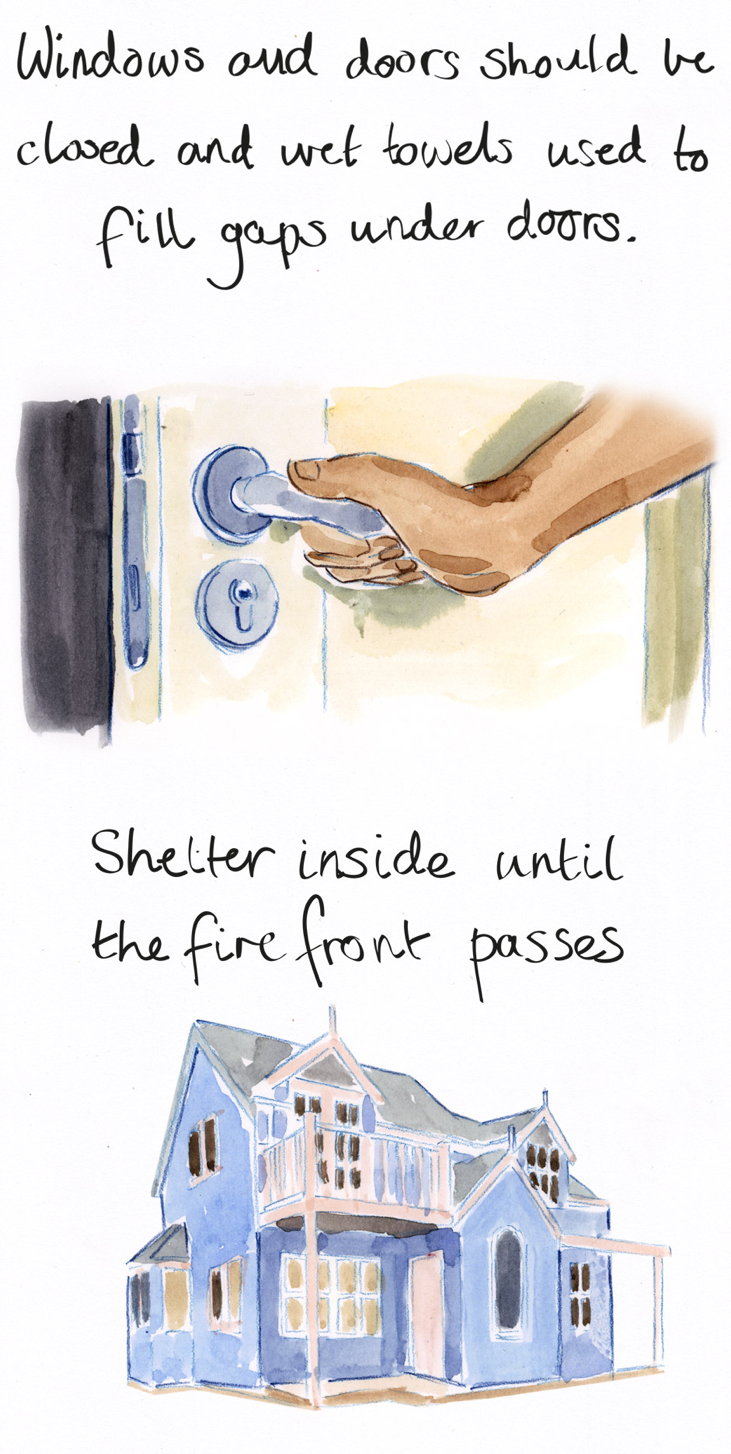 Windows and doors should be
closed and wet towels used to
fill gaps under doors.
Shelter inside until
the fire front passes